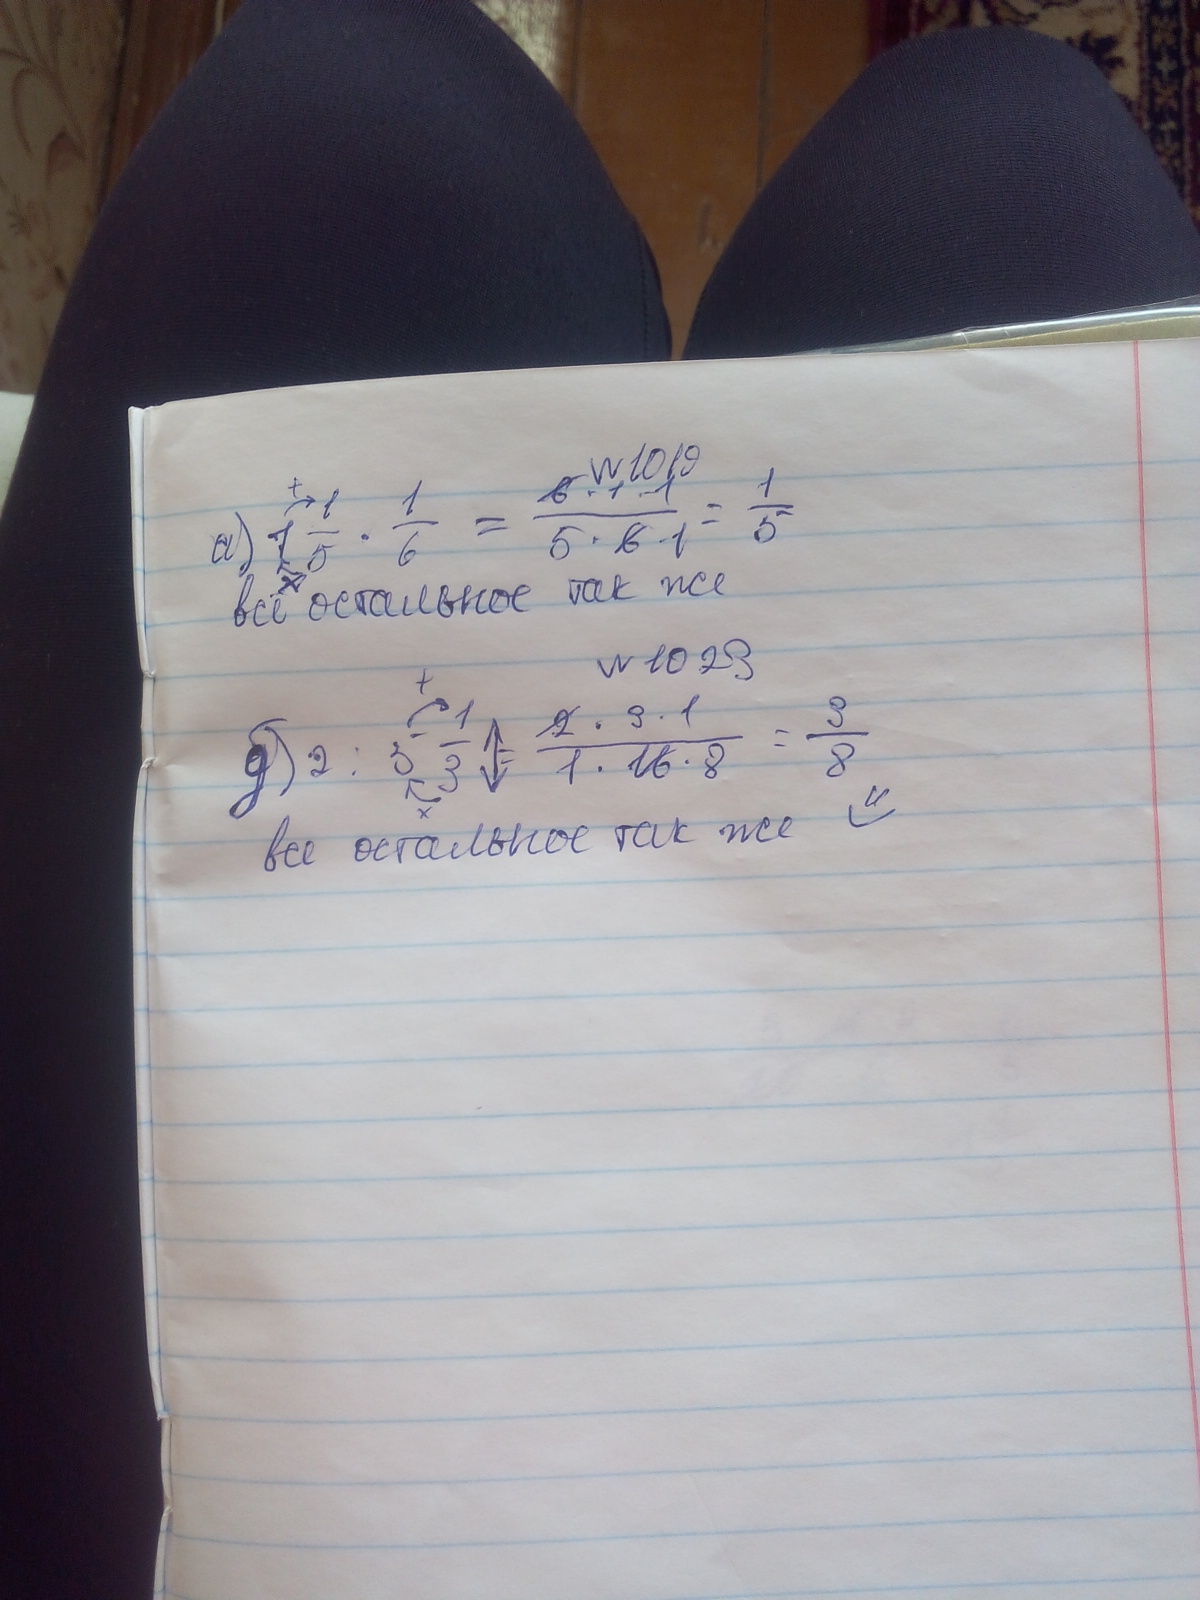 №1019
а) 1 1/5 · 1/6 = 6·1·1/5·6·1 = 1/5
всё остальное так же
№1023
д) 2 : 5 1/3 = 2·3·1/1·16·8 = 3/8
все остальное так же